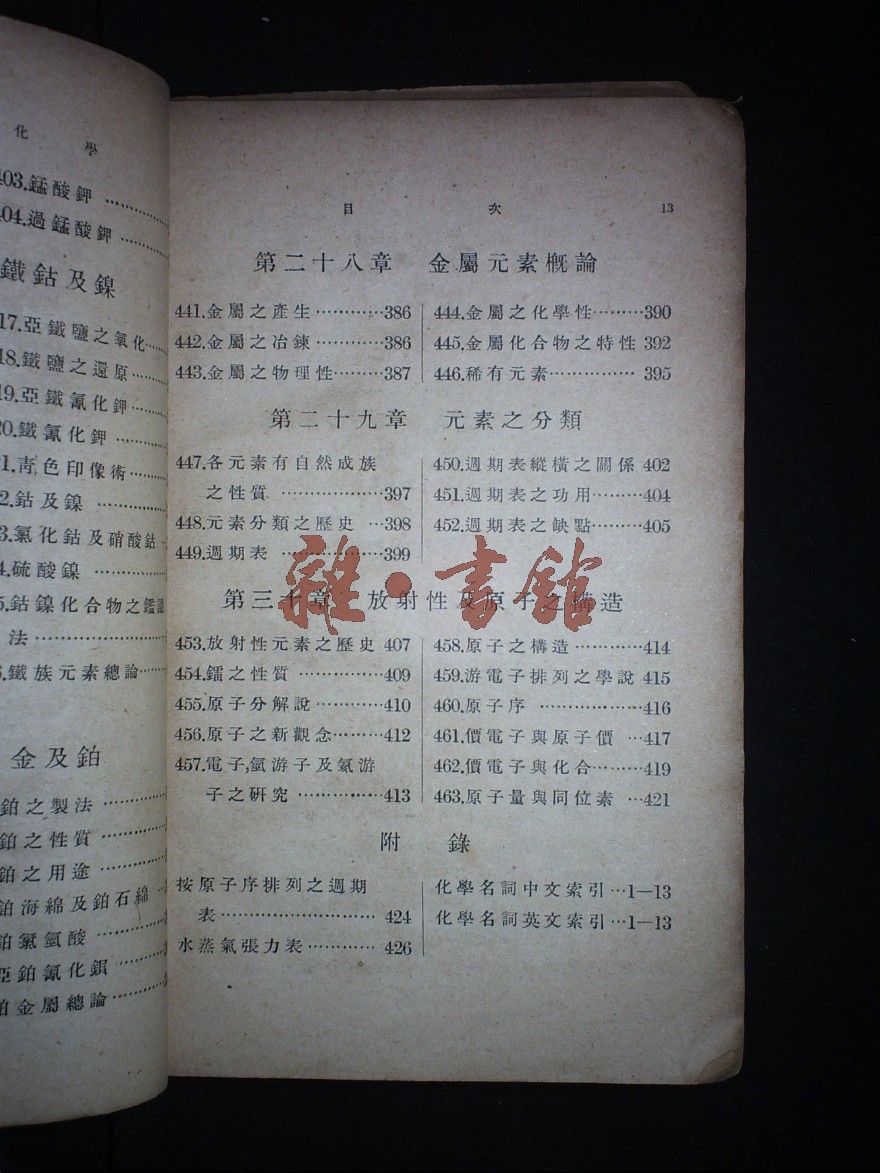 化 學
403.錳酸鉀
404.過錳酸鉀
鐵鈷及鎳
17.亞鐵鹽之氧化
18.鐵鹽之還原
19.亞鐵氰化鉀
20.鐵氰化鉀
21.青色印像術
2.鈷及鎳
3.氯化鈷及硝酸鈷
4.硫酸鎳
5.鈷鎳化合物之鑑識
法
6.鐵族元素總論
金及鉑
鉑之製法
鉑之性質
鉑之用途
鉑海綿及鉑石綿
鉑氯氫酸
亞鉑氰化鋇
鉑金屬總論
目 次 13
第二十八章 金屬元素概論
441.金屬之產生…………386
442.金屬之冶鍊…………386
443.金屬之物理性………387
444.金屬之化學性………390
445.金屬化合物之特性 392
446.稀有元素…………… 395
第二十九章 元素之分類
447.各元素有自然成族
之性質 ………………397
448.元素分類之歷史 …398
449.週期表 ………………399
450.週期表縱橫之關係 402
451.週期表之功用………404
452.週期表之缺點………405
第三十章 放射性及原子之構造
453.放射性元素之歷史 407
454.鐳之性質 ……………409
455.原子分解說…………410
456.原子之新觀念………412
457.電子,氫游子及氦游
子之研究 ……………413
458.原子之構造…………414
459.游電子排列之學說 415
460.原子序 ………………416
461.價電子與原子價 …417
462.價電子與化合………419
463.原子量與同位素 …421
附 錄
按原子序排列之週期
表…………………… 424
水蒸氣張力表………… 426
化學名詞中文索引…1—13
化學名詞英文索引…1—13
雜·書館